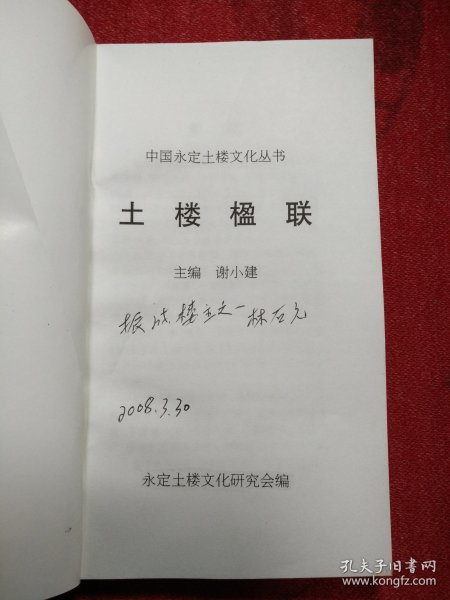 中国永定土楼文化丛书
土楼楹联
主编 谢小建
振成楼主之一 林
2008.3.30
永定土楼文化研究会编
孔夫子旧书网
www.kongfz.com